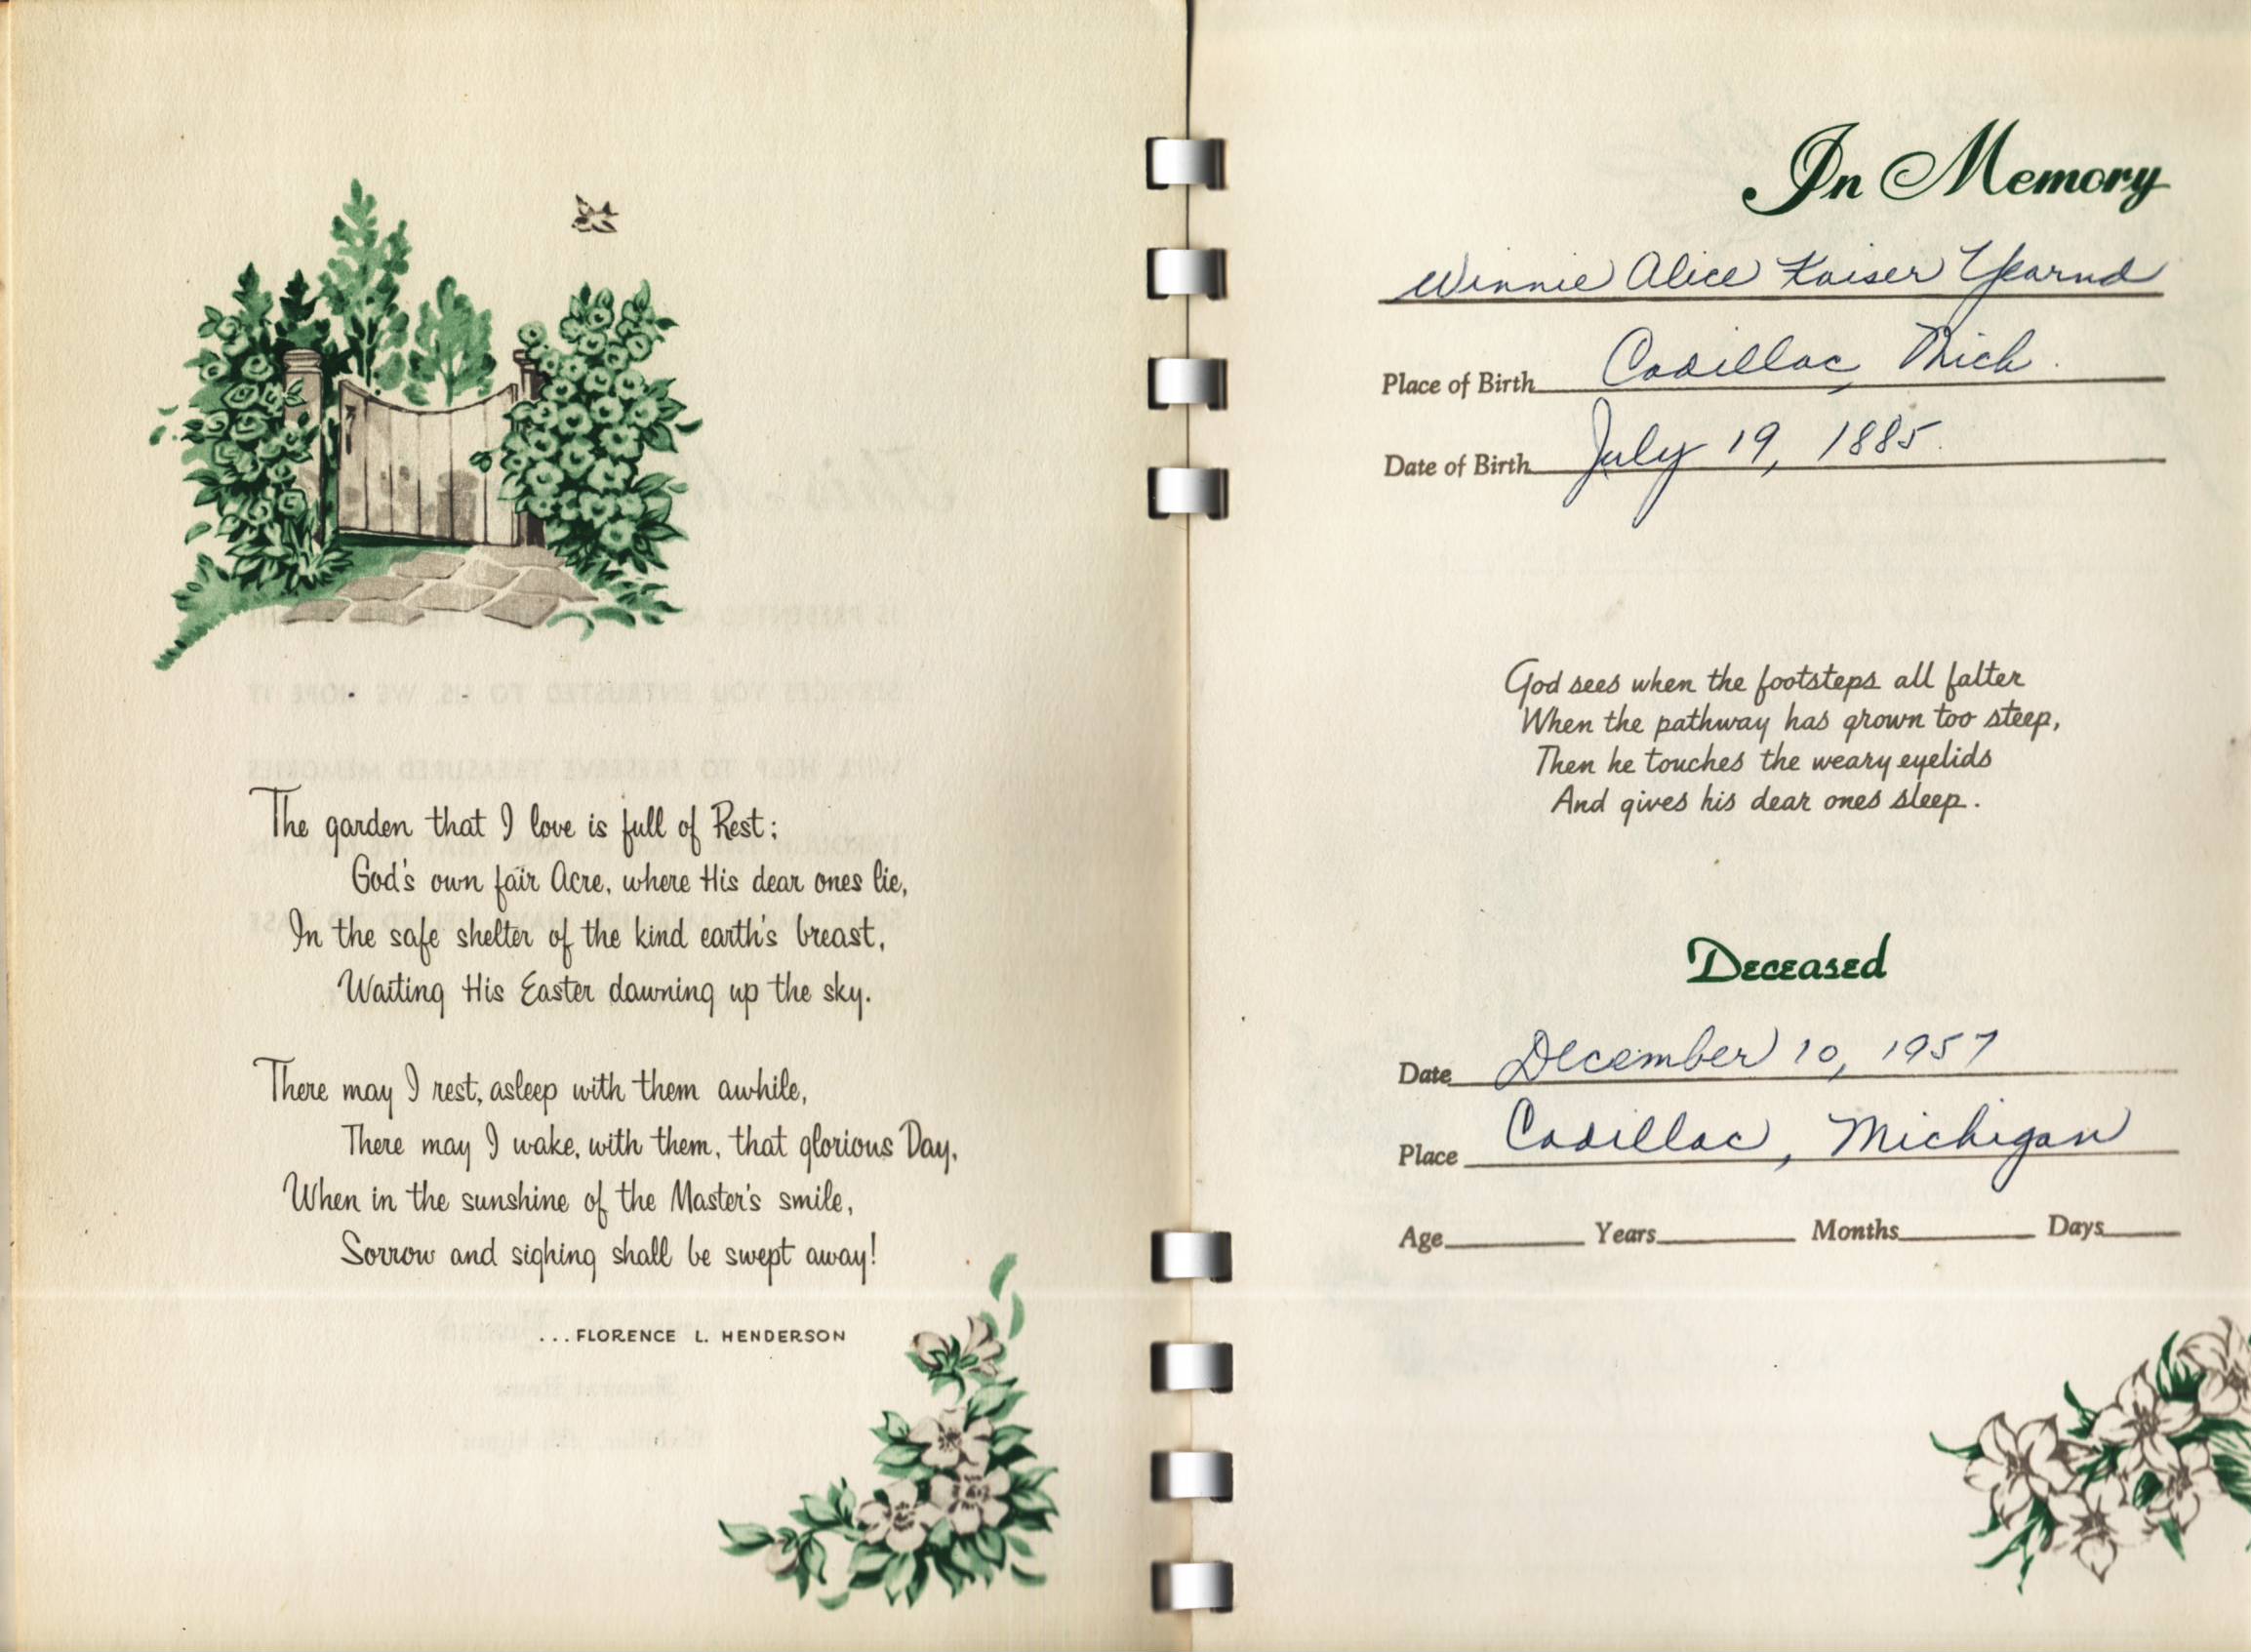 The garden that I love is full of Rest;
God's own fair Acre, where His dear ones lie,
In the safe shelter of the kind earth's breast,
Waiting His Easter dawning up the sky.
There may I rest, asleep with them awhile,
There may I wake, with them, that glorious Day,
When in the sunshine of the Master's smile,
Sorrow and sighing shall be swept away!
...FLORENCE L. HENDERSON
In Memory
Winnie Alice Kaiser Yearnd
Place of Birth Cadillac, Mich.
Date of Birth July 19, 1885.
God sees when the footsteps all falter
When the pathway has grown too steep,
Then he touches the weary eyelids
And gives his dear ones sleep.
Deceased
Date December 10, 1957
Place Cadillac, Michigan
Age Years Months Days